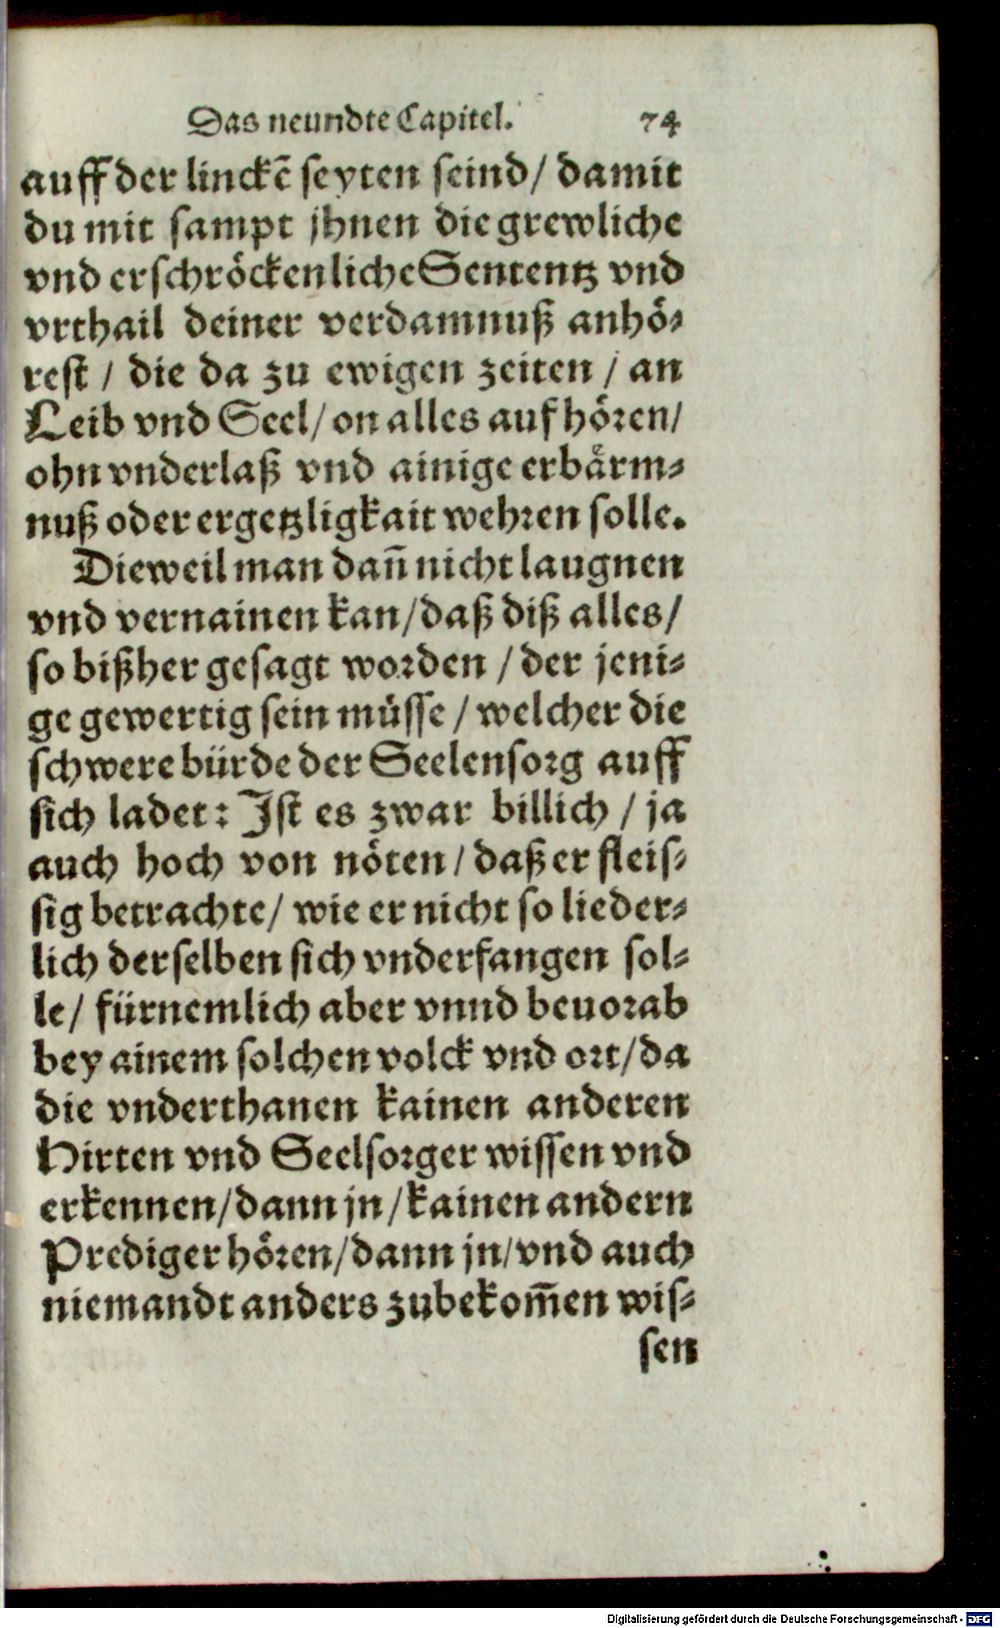 Das neundte Capitel. 74
auff der linckē seyten seind/ damit
du mit sampt jhnen die grewliche
vnd erschröckenliche Sententz vnd
vrthail deiner verdamnuß anhö-
rest / die da zu ewigen zeiten / an
Leib vnd Seel/ on alles aufhören/
ohn vnderlaß vnd ainige erbärm-
nuß oder ergetzligkait wehren solle.
Dieweil man dañ nicht laugnen
vnd vernainen kan/ daß diß alles/
so bißher gesagt worden / der jeni-
ge gewertig sein müsse / welcher die
schwere bürde der Seelensorg auff
sich ladet: Ist es zwar billich / ja
auch hoch von nöten / daß er fleis-
sig betrachte/ wie er nicht so lieder-
lich derselben sich vnderfangen sol-
le/ fürnemlich aber vnnd beuorab
bey ainem solchen volck vnd ort/ da
die vnderthanen kainen anderen
Hirten vnd Seelsorger wissen vnd
erkennen/ dann jn / kainen andern
Prediger hören/ dann jn/ vnd auch
niemandt anders zubekom̄en wis-
sen
Digitalisierung gefördert durch die Deutsche Forschungsgemeinschaft - DFG